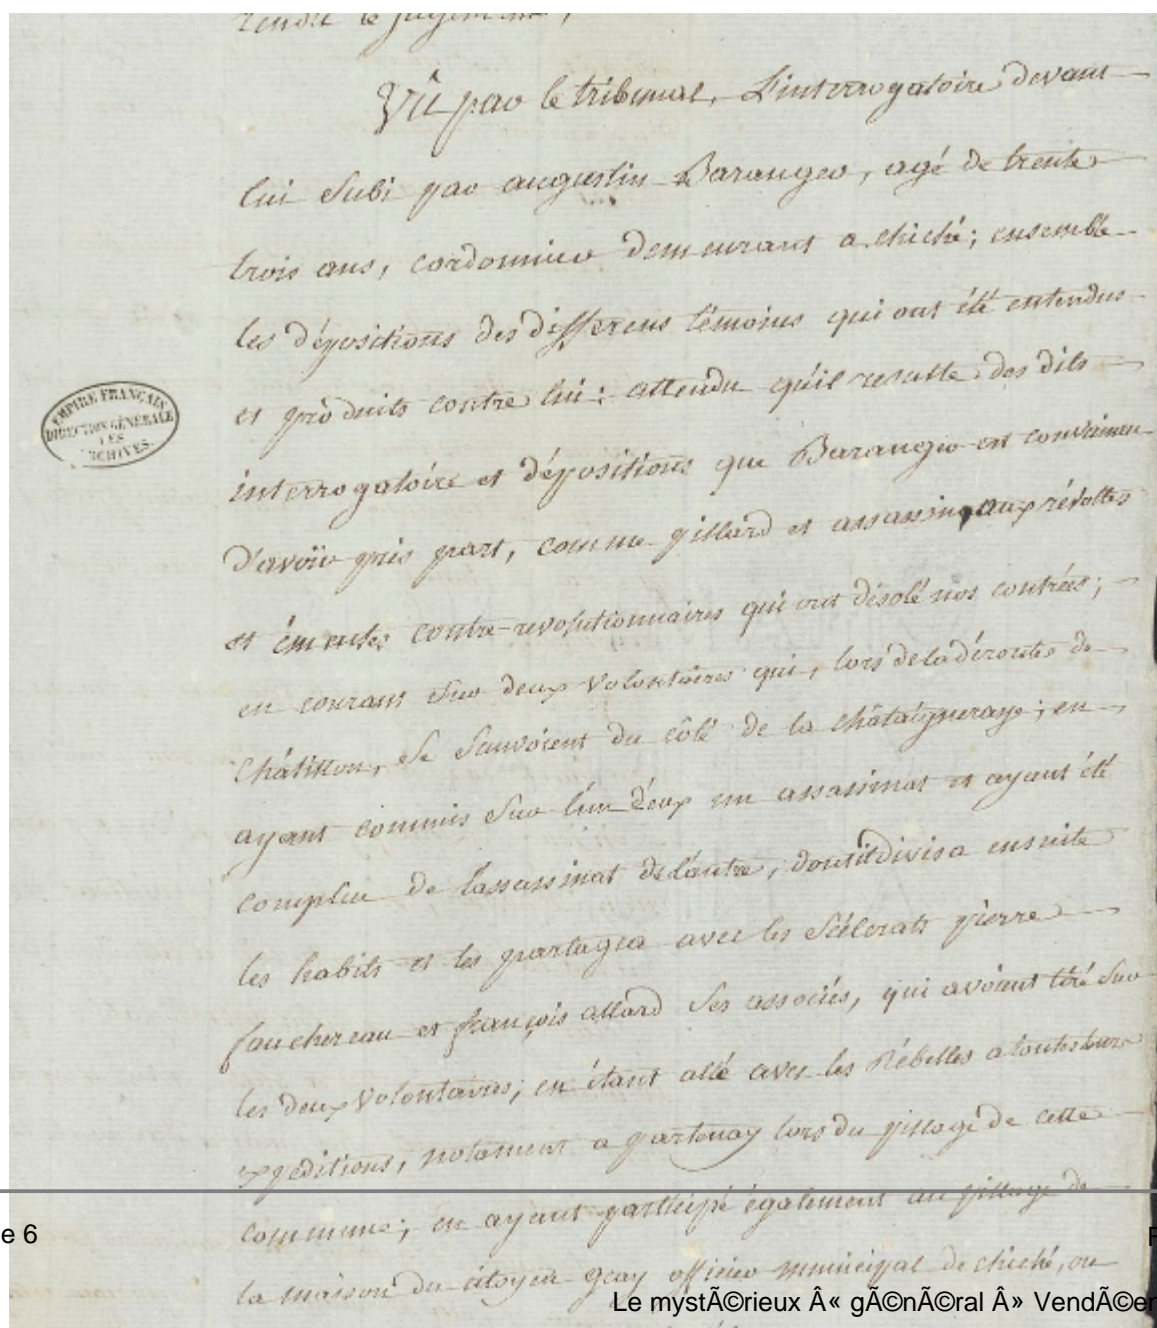 rendre le jugement;
Vû par le tribunal, L'interrogatoire devant
lui subi par augustin Baranger, agé de trente
trois ans, cordonnier demeurant a chiché; ensemble
les dépositions des differens témoins qui ont été entendus
et produits contre lui; attendu qu'il resulte des dits
EMPIRE FRANÇAIS
DIRECTION GÉNÉRALE
DES
ARCHIVES.
interrogatoire et dépositions que Baranger est convaincu
D'avoir pris part, comme pillard et assassin, aux révoltes
et émeutes contre-revolutionnaires qui ont désolé nos contrées;
en courant sur deux volontaires qui, lors de la déroute de
Châtillon, se sauvoient du côté de la châtaigneraye; en
ayant commis sur l'un d'eux un assassinat et ayant été
complice de l'assassinat de l'autre, dont il divisa ensuite
les habits et les partagea avec les scélerats pierre
fauchereau et françois allard ses associés, qui avoient tiré sur
les deux volontaires; en étant allé avec les Rébelles a toutes leurs
expeditions, notament a partenay lors du pillage de cette
commune; en ayant participé également au pillage de
e 6
la maison du citoyen geay officier municipal de chiché, ou
Le mystÃ©rieux Â« gÃ©nÃ©ral Â» VendÃ©en